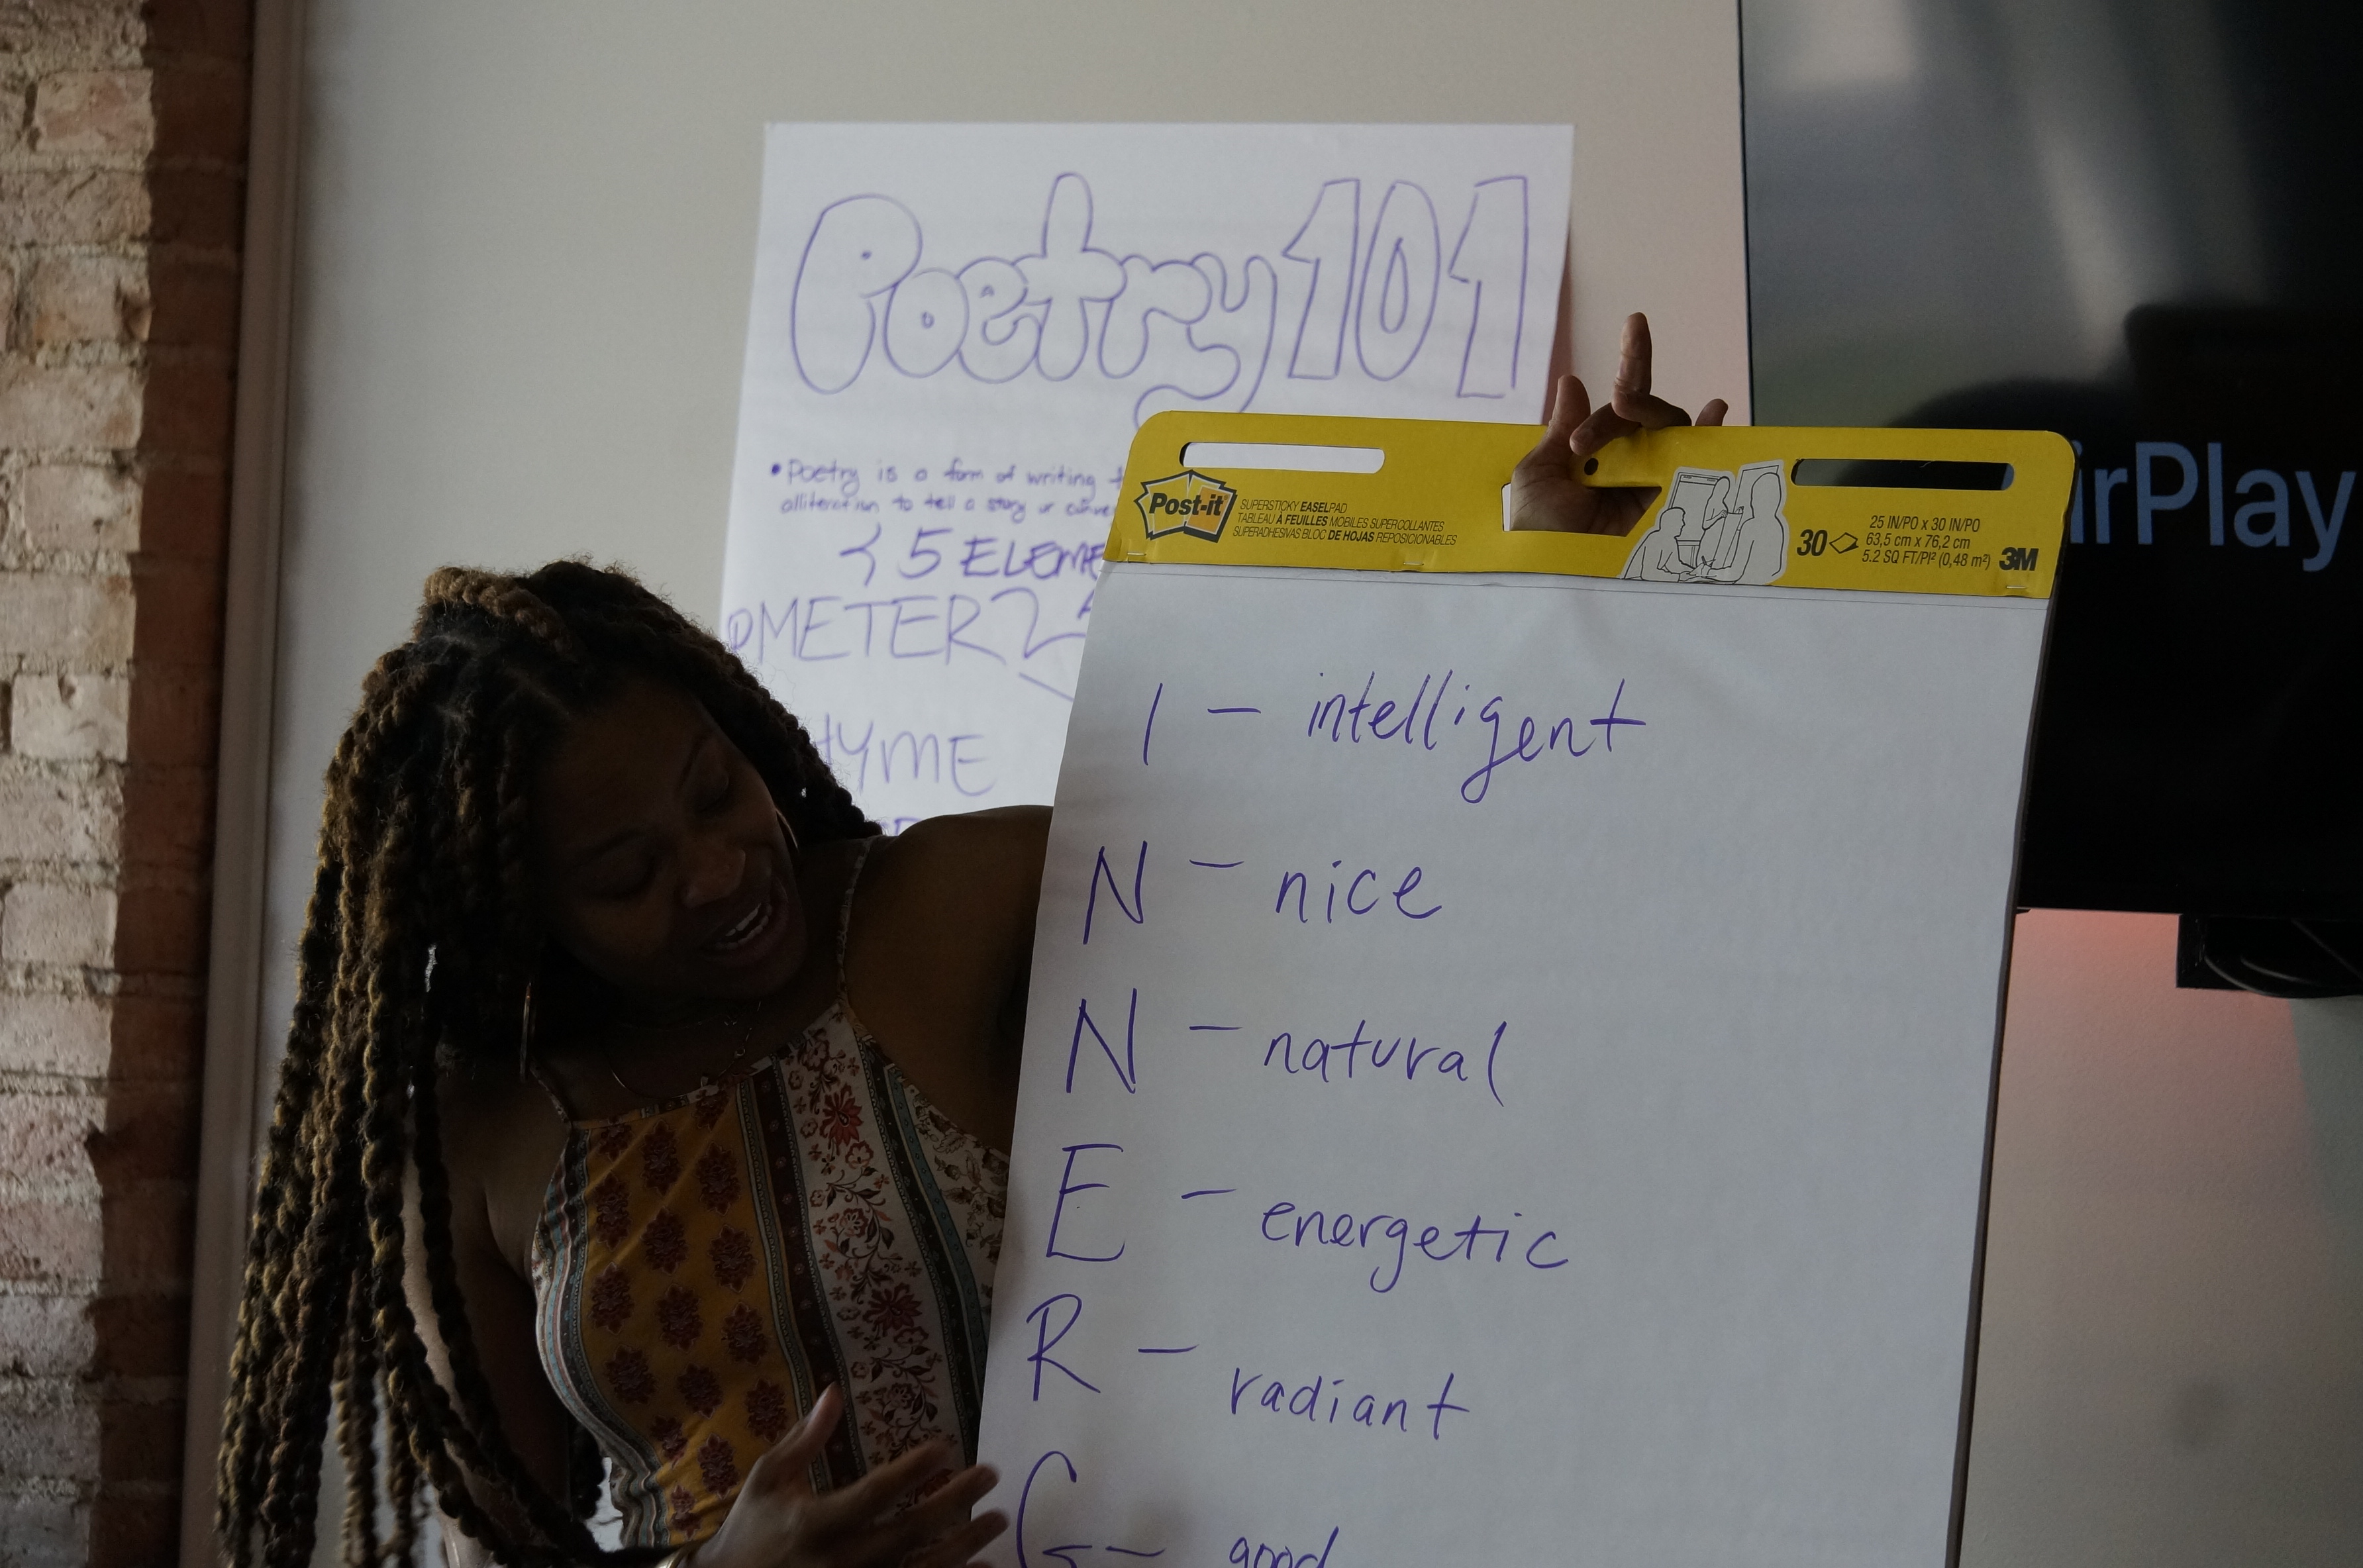 Poetry 101
• Poetry is a form of writing
alliteration to tell a story or
5 ELEME
METER
HYME
Post-it
SUPERSTICKY EASEL PAD
TABLEAU À FEUILLES MOBILES SUPERCOLLANTES
SUPERADHESIVAS BLOC DE HOJAS REPOSICIONABLES
30
25 IN/PO x 30 IN/PO
63,5 cm x 76,2 cm
5.2 SQ FT/PI² (0,48 m²)
3M
irPlay
I - intelligent
N - nice
N - natural
E - energetic
R - radiant
G - good